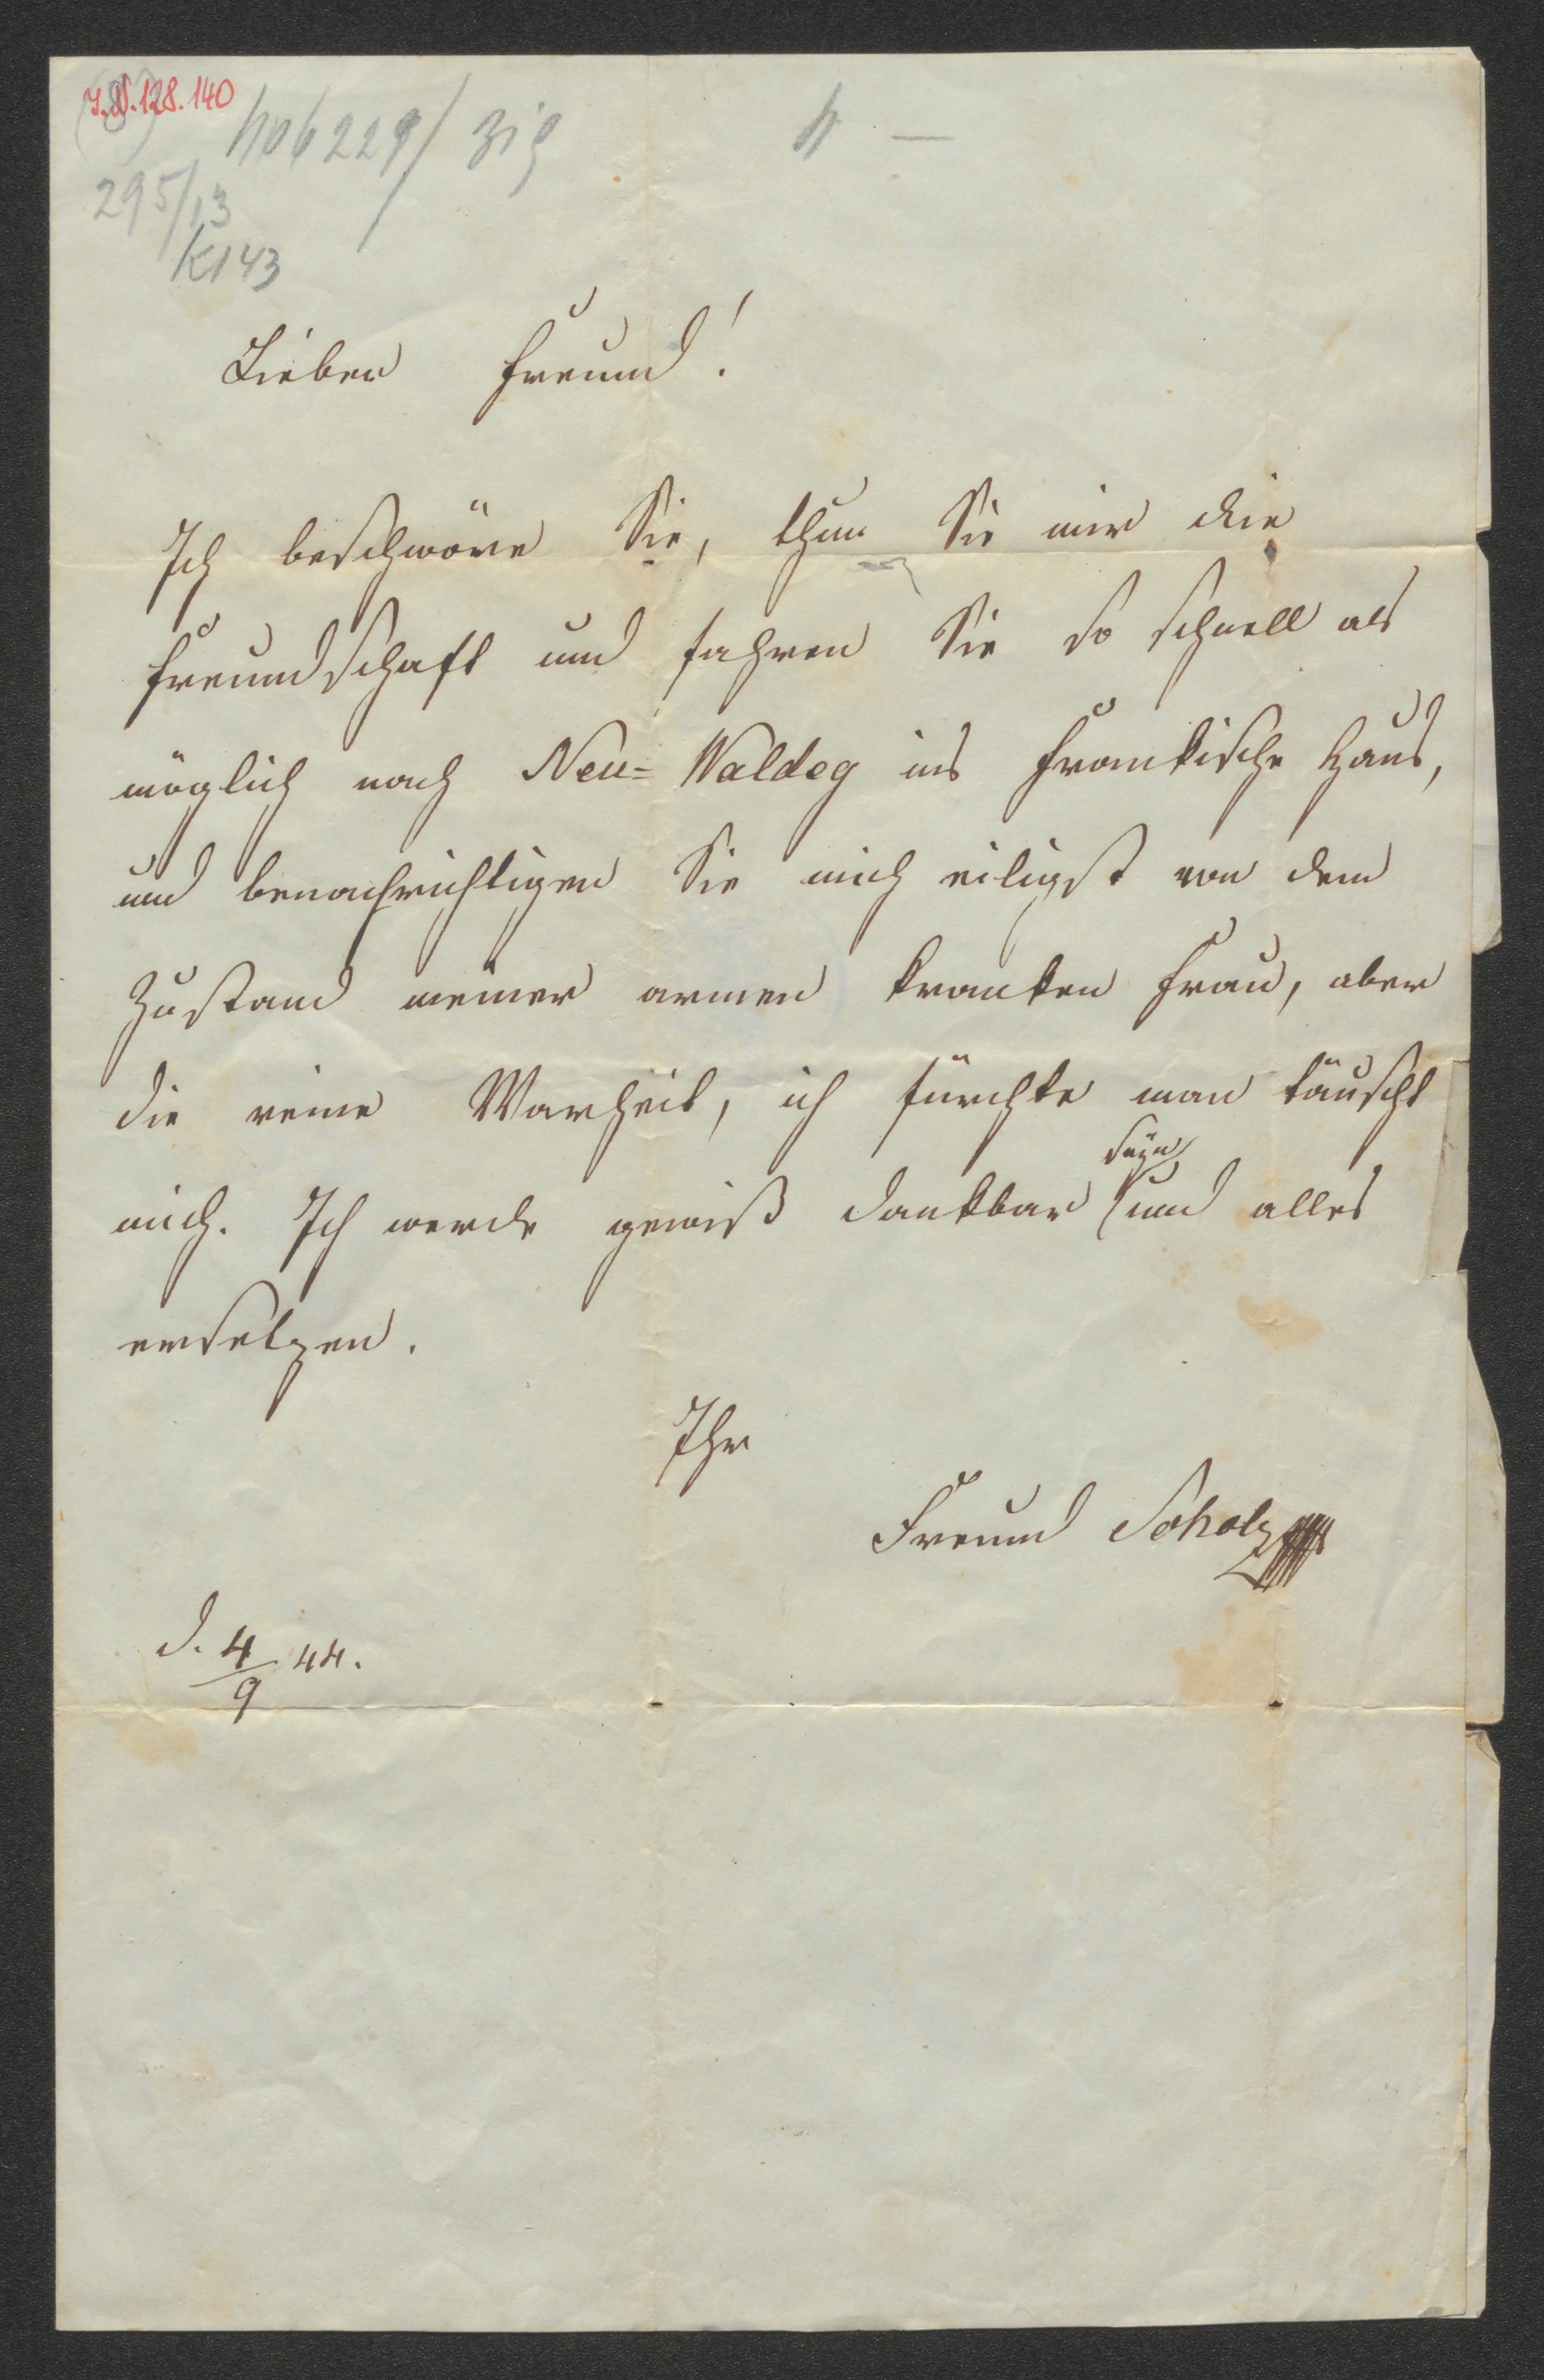 I.N. 128.140
(8)
h06229/ Zig
h —
295/13
K143
Lieber Freund!
Ich beschwöre Sie, thun Sie mir die
Freundschaft und fahren Sie so schnell als
möglich nach Neu=Waldeg ins Frankische Haus,
und benachrichtigen Sie mich eiligst von dem
Zustand meiner armen kranken Frau, aber
die reine Warheit, ich fürchte man täuscht
seyn
mich. Ich werde gewiß dankbar und alles
ersetzen.
Ihr
Freund Scholz
d. 4/9 44.